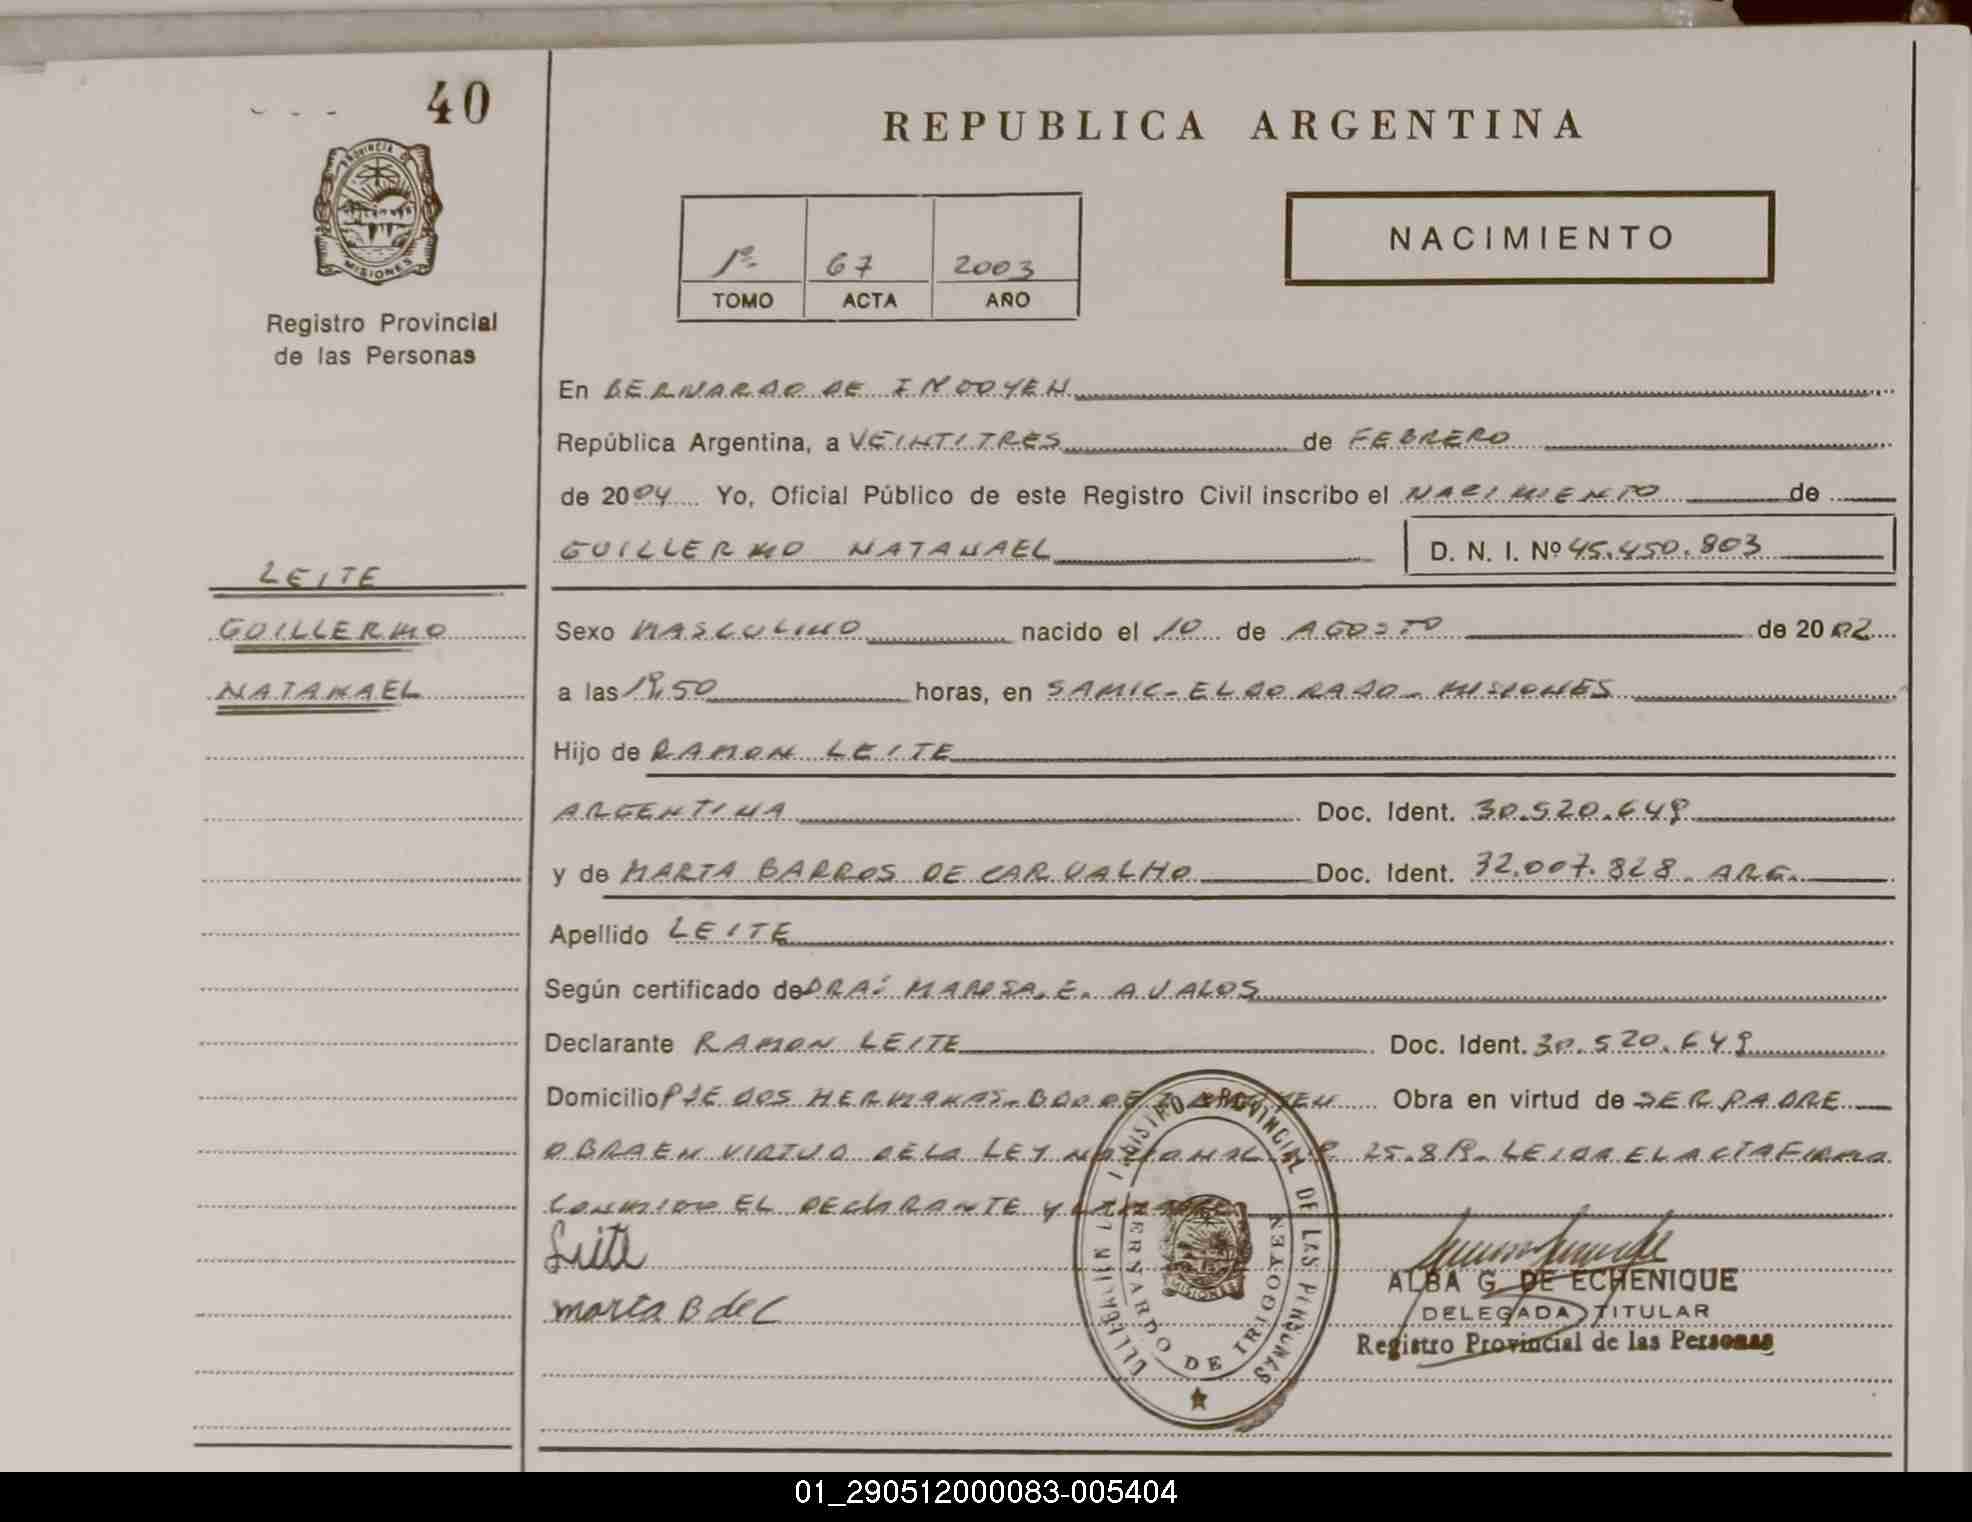 40
PROVINCIA DE
MISIONES
Registro Provincial
de las Personas
LEITE
GUILLERMO
NATANAEL
REPUBLICA ARGENTINA
1º 67 2003
TOMO ACTA AÑO
NACIMIENTO
En BERNARDO DE IRIGOYEN
República Argentina, a VEINTITRES de FEBRERO
de 2004 Yo, Oficial Público de este Registro Civil inscribo el NACIMIENTO de
GUILLERMO NATANAEL D. N. I. Nº 45.450.803
Sexo MASCULINO nacido el 10 de AGOSTO de 2002
a las 19,50 horas, en SAMIC-ELDORADO- MISIONES
Hijo de RAMON LEITE
ARGENTINA Doc. Ident. 30.520.649
y de MARTA BARROS DE CARVALHO Doc. Ident. 32.007.828 ARG.
Apellido LEITE
Según certificado de DRA: E. AVALOS
Declarante RAMON LEITE Doc. Ident. 30.520.649
Domicilio PJE DOS HERMANAS- Obra en virtud de SER PADRE
OBRA EN VIRTUD DE LA LEY NACIONAL LEIDA EL ACTA FIRMA
CONMIGO EL DECLARANTE Y LA MADRE
Leite
marta B de C
PROVINCIAL DE LAS PERSONAS
BERNARDO DE IRIGOYEN
MISIONES
ALBA G. DE ECHENIQUE
DELEGADA TITULAR
Registro Provincial de las Personas
01_290512000083-005404